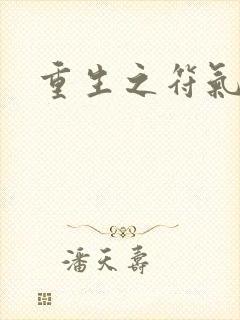 重生之符氣
潘天壽